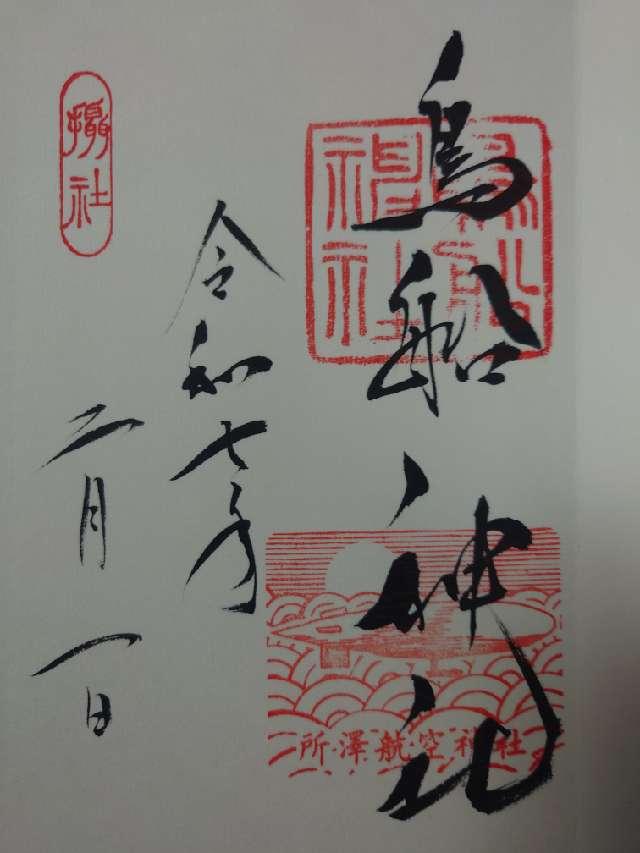 鳥船神社
令和七年
二月一日
摂社
鳥船神社
所澤航空神社